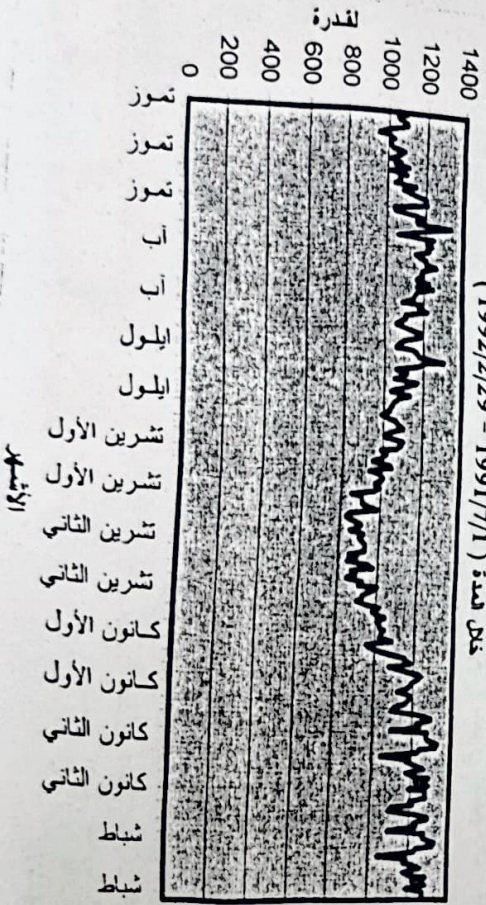 خلال المدة ( 1991/7/1 - 1992/2/29 )
لقدرة
1400
1200
1000
800
600
400
200
0
تموز
تموز
تموز
آب
آب
ايلول
ايلول
تشرين الأول
تشرين الأول
تشرين الثاني
تشرين الثاني
كانون الأول
كانون الأول
كانون الثاني
كانون الثاني
شباط
شباط
الأشهر